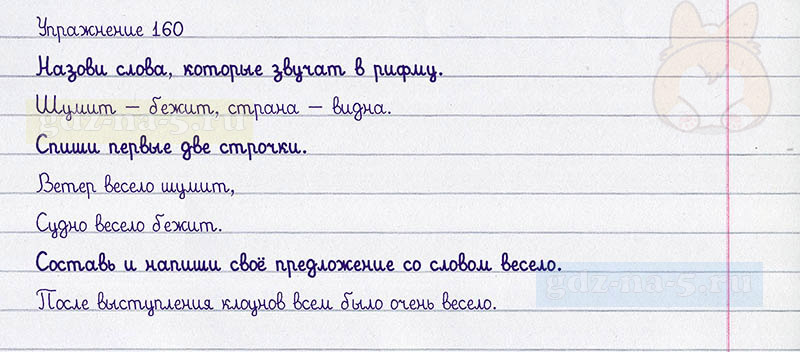 Упражнение 160
Назови слова, которые звучат в рифму.
Шумит – бежит, страна – видна.
gdz-na-5.ru
Спиши первые две строчки.
Ветер весело шумит,
Судно весело бежит.
Составь и напиши своё предложение со словом весело.
gdz-na-5.ru
После выступления клоунов всем было очень весело.